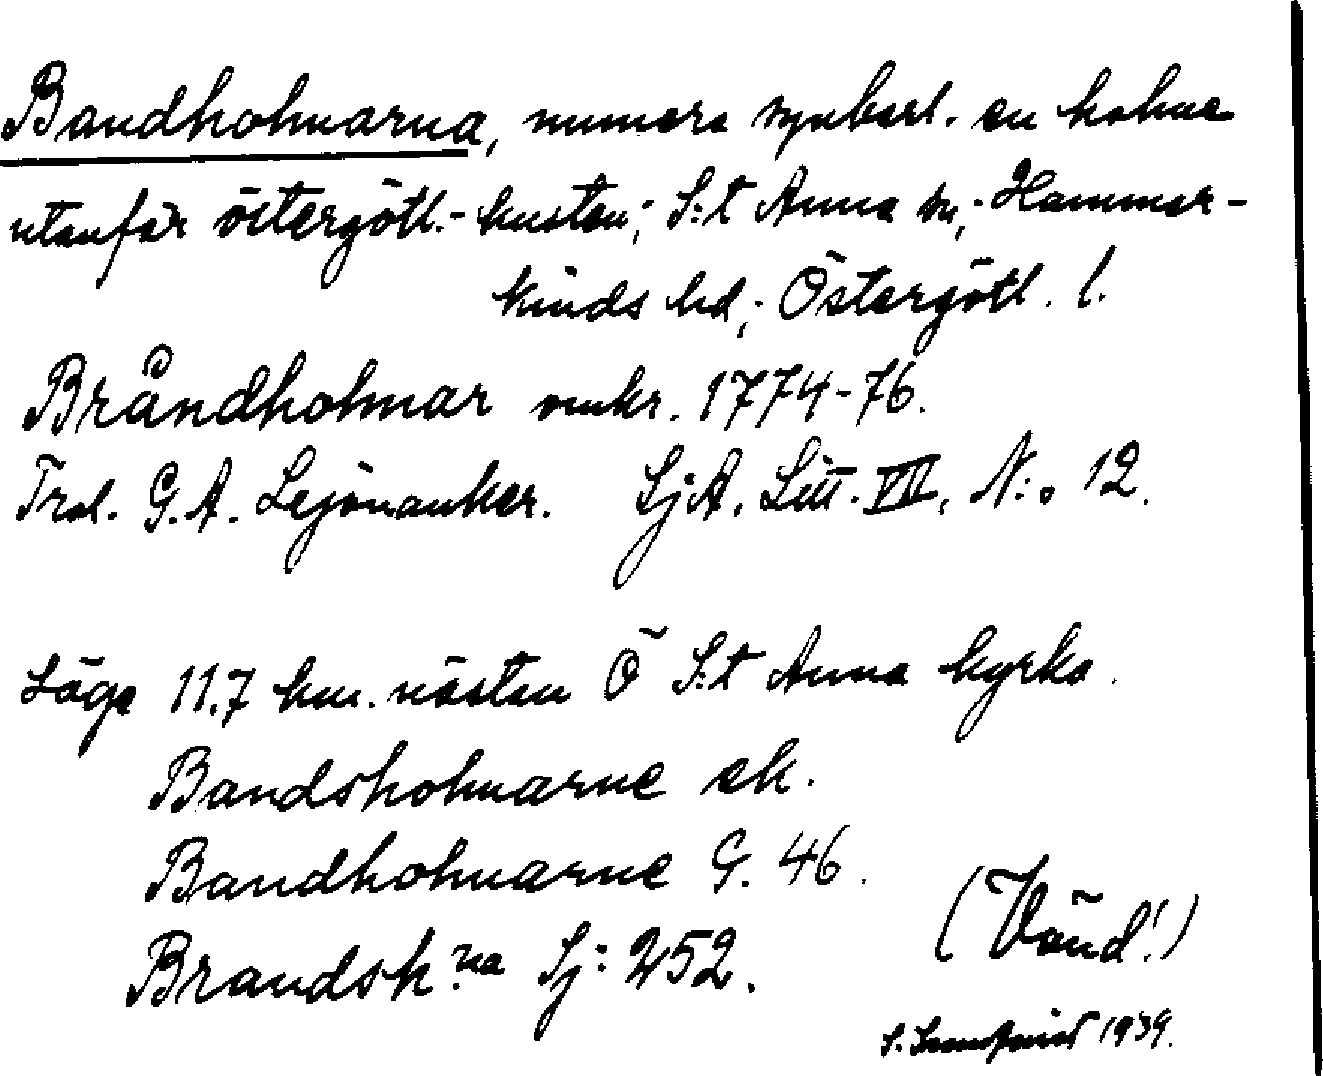 Bandholmarna, numera synbarl. en holme
utanför östergötl.-kusten; S:t Anna sn; Hammar-
kinds hd; Östergötl. l.
Bråndholmar omkr. 1774-76.
Trol. G.A. Lejonanker. SjA. Litt. VII. N:o 12.
Läge 11.7 km. nästan Ö S:t Anna kyrka.
Bandsholmarne ek.
Bandholmarne G. 46.
Brandsh:na Sj: 252.
(Vänd!)
S. 1939.